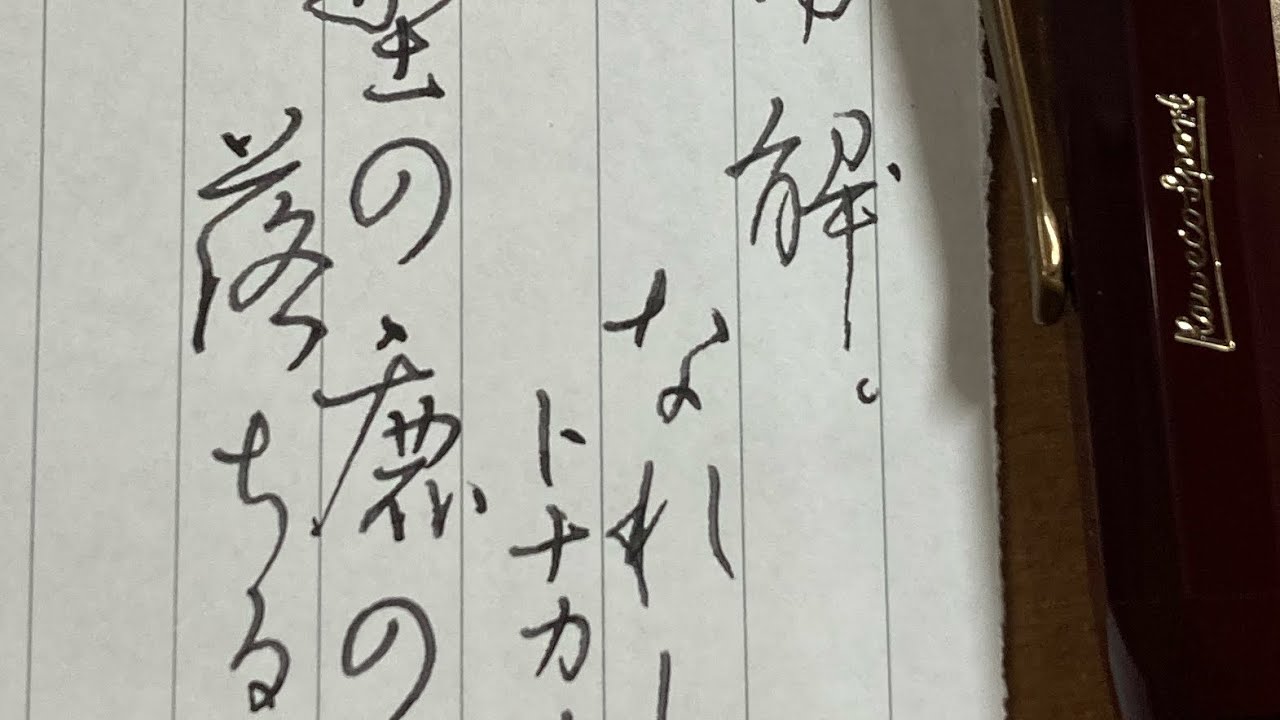 解。
なれ
トナカ
の鹿の
落ちる
Kaweco Sport